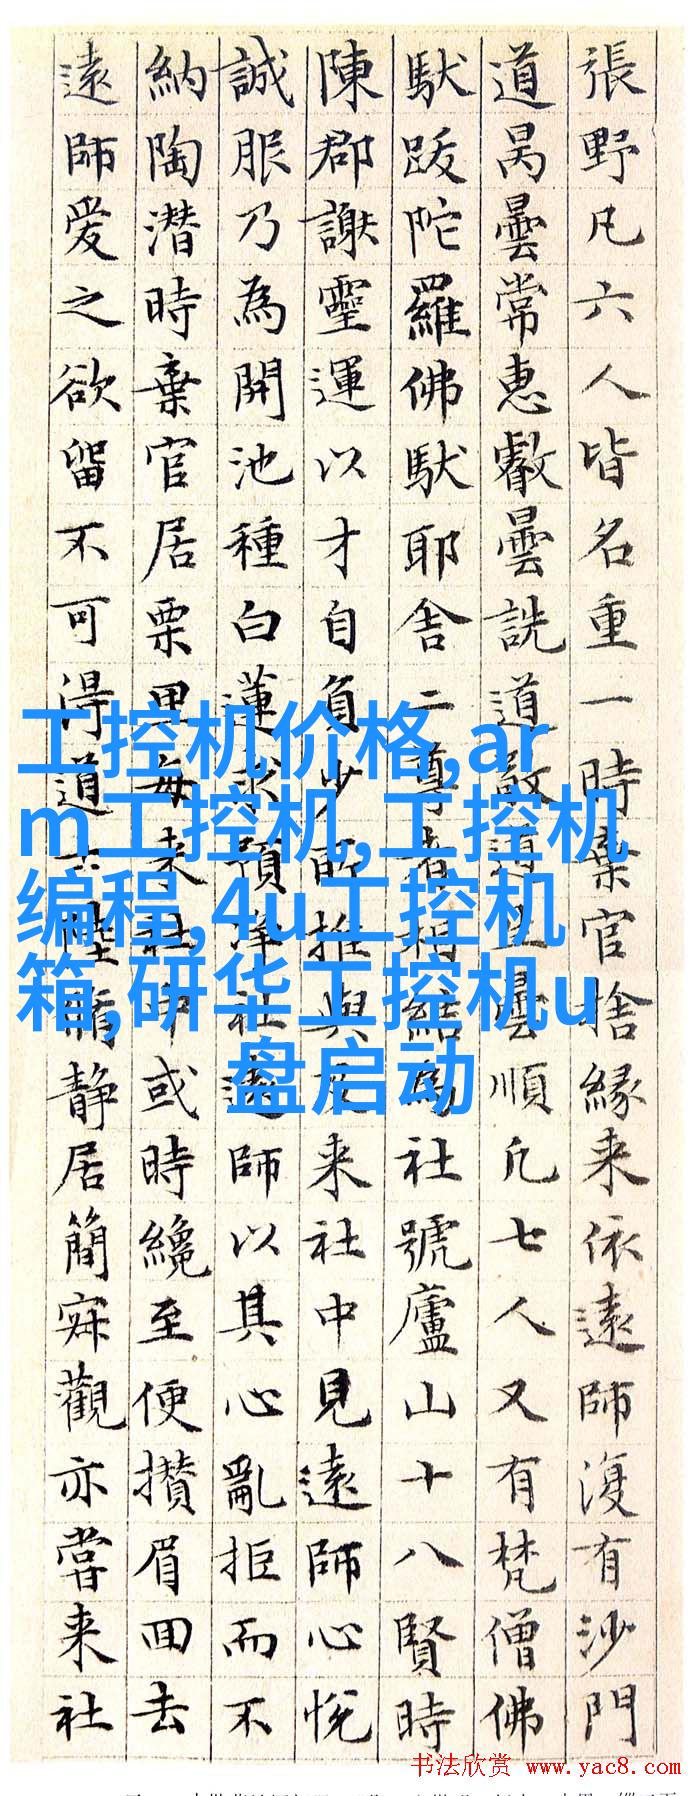 張野凡六人皆名重一時棄官捨緣来依遠師復有沙門
道昺曇常惠叡曇詵道敬道生曇順凡七人又有梵僧佛
馱跋陀羅佛馱耶舍二尊者相結為社號廬山十八賢時
陳郡謝靈運以才自負少所推與及来社中見遠師心悅
誠服乃為開池種白蓮求預淨社遠師以其心亂拒而不
納陶潜時棄官居栗里每来社中或時纔至便攢眉回去
遠師爱之欲留不可得道士陸脩静居簡寂觀亦嘗来社
工控机价格,ar
m工控机,工控机
编程,4u工控机
箱,研华工控机u
盘启动
书法欣赏 www.yac8.com